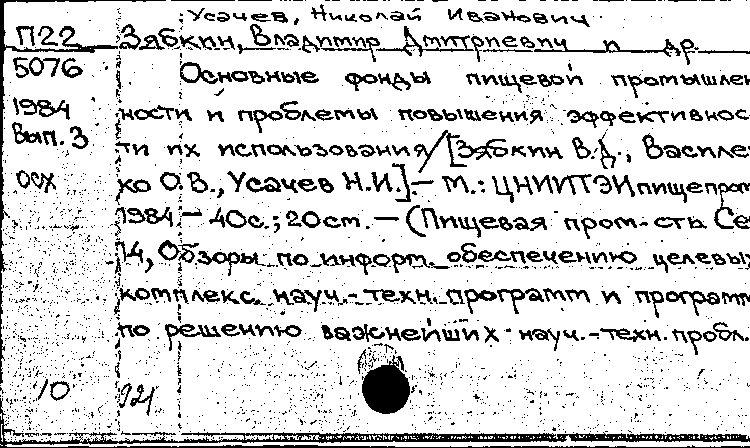 Усачев, Николай Иванович
П22 Зябкин, Владимир Дмитриевич и др.
5076 Основные фонды пищевой промышлен
1984 ности и проблемы повышения эффективнос
Вып. 3 ти их использования / [Зябкин В.Д., Василен
ОСХ ко О.В., Усачев Н.И.]. — М.: ЦНИИТЭИпищепром
1984. — 40с.; 20см. — (Пищевая пром-сть Се
14, Обзоры по информ. обеспечению целевых
комплекс. науч.-техн. программ и программ
по решению важнейших науч.-техн. пробл.
10